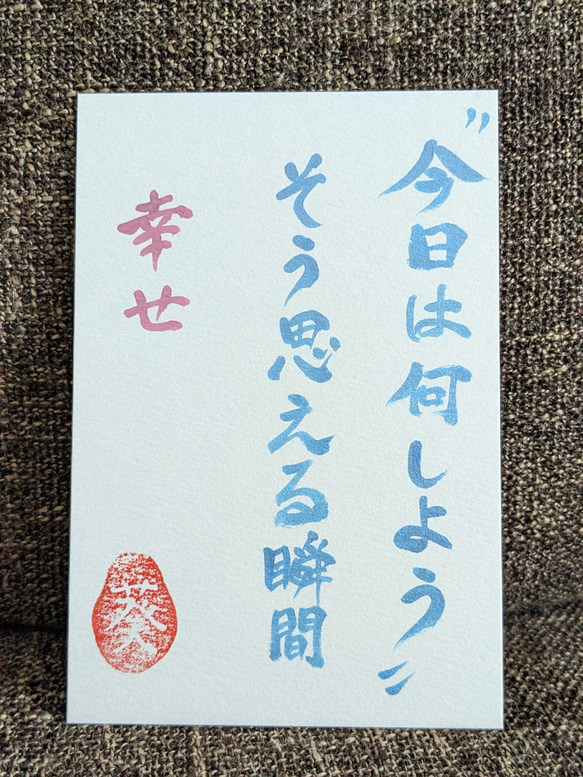 〝今日は何しよう〟
そう思える瞬間
幸せ
葵